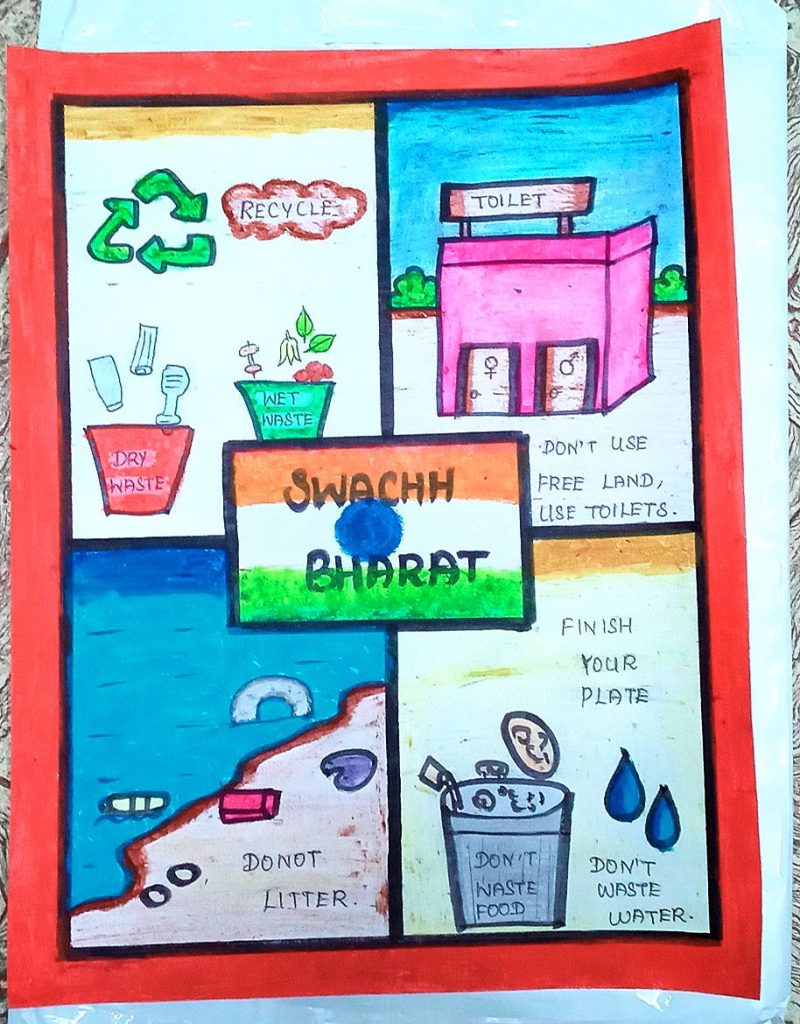 RECYCLE
DRY
WASTE
WET
WASTE
TOILET
DON'T USE
FREE LAND,
USE TOILETS.
SWACHH
BHARAT
DONOT
LITTER.
FINISH
YOUR
PLATE
DON'T
WASTE
FOOD
DON'T
WASTE
WATER.